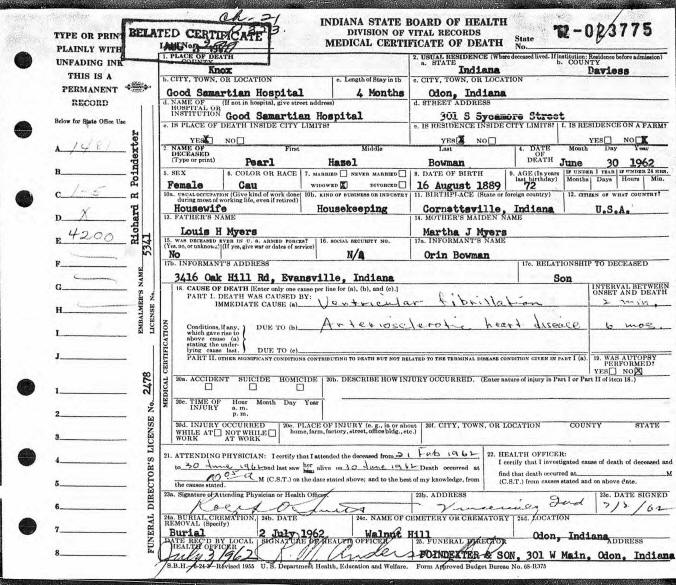 INDIANA STATE BOARD OF HEALTH
DIVISION OF VITAL RECORDS
MEDICAL CERTIFICATE OF DEATH
State No.
TYPE OR PRINT
PLAINLY WITH
UNFADING INK
THIS IS A
PERMANENT
RECORD
Below for State Office Use
RELATED CERTIFICATE
1. PLACE OF DEATH
Knox
2. USUAL RESIDENCE (Where deceased lived. If institution: Residence before admission)
a. STATE Indiana b. COUNTY Daviess
b. CITY, TOWN, OR LOCATION c. Length of Stay in 1b c. CITY, TOWN, OR LOCATION
Good Samartian Hospital 4 Months Odon, Indiana
d. NAME OF HOSPITAL OR INSTITUTION (If not in hospital, give street address) Good Samartian Hospital
d. STREET ADDRESS
301 S Sycamore Street
e. IS PLACE OF DEATH INSIDE CITY LIMITS? e. IS RESIDENCE INSIDE CITY LIMITS? f. IS RESIDENCE ON A FARM?
YES X NO YES X NO YES NO X
NAME OF DECEASED (Type or print) First Middle Last 4. DATE OF DEATH Month Day Year
Pearl Hazel Bowman June 30 1962
5. SEX 6. COLOR OR RACE 7. MARRIED NEVER MARRIED 8. DATE OF BIRTH 9. AGE (In years last birthday) IF UNDER 1 YEAR IF UNDER 24 HRS.
Months Days Hours Min.
Female Cau WIDOWED X DIVORCED 16 August 1889 72
10a. USUAL OCCUPATION (Give kind of work done during most of working life, even if retired) 10b. KIND OF BUSINESS OR INDUSTRY 11. BIRTHPLACE (State or foreign country) 12. CITIZEN OF WHAT COUNTRY?
Housewife Housekeeping Cornettsville, Indiana U.S.A.
13. FATHER'S NAME 14. MOTHER'S MAIDEN NAME
Louis H Myers Martha J Myers
15. WAS DECEASED EVER IN U. S. ARMED FORCES? 16. SOCIAL SECURITY NO. 17a. INFORMANT'S NAME
(Yes, no, or unknown) (If yes, give war or dates of service)
No N/A Orin Bowman
17b. INFORMANT'S ADDRESS 17c. RELATIONSHIP TO DECEASED
3416 Oak Hill Rd, Evansville, Indiana Son
18. CAUSE OF DEATH (Enter only one cause per line for (a), (b), and (c).) INTERVAL BETWEEN ONSET AND DEATH
PART I. DEATH WAS CAUSED BY:
IMMEDIATE CAUSE (a) Ventricular fibrillation 2 min.
Conditions, if any, which gave rise to above cause (a) stating the underlying cause last.
DUE TO (b) Arteriosclerotic heart disease 6 mos.
DUE TO (c)
PART II. OTHER SIGNIFICANT CONDITIONS CONTRIBUTING TO DEATH BUT NOT RELATED TO THE TERMINAL DISEASE CONDITION GIVEN IN PART I (a). 19. WAS AUTOPSY PERFORMED?
YES NO X
20a. ACCIDENT SUICIDE HOMICIDE 20b. DESCRIBE HOW INJURY OCCURRED. (Enter nature of injury in Part I or Part II of item 18.)
20c. TIME OF INJURY Hour Month Day Year
a. m.
p. m.
20d. INJURY OCCURRED 20e. PLACE OF INJURY (e.g., in or about home, farm, factory, street, office bldg., etc.) 20f. CITY, TOWN, OR LOCATION COUNTY STATE
WHILE AT WORK NOT WHILE AT WORK
21. ATTENDING PHYSICIAN: I certify that I attended the deceased from 21 Feb 1962
to 30 June 1962 and last saw her alive on 30 June 1962 Death occurred at
M (C.S.T.) on the date stated above; and to the best of my knowledge, from the causes stated.
22. HEALTH OFFICER:
I certify that I investigated cause of death of deceased and find that death occurred at
M (C.S.T.) from causes and on above date.
23a. Signature of Attending Physician or Health Officer 23b. ADDRESS 23c. DATE SIGNED
Vincennes Ind 7/2/62
24a. BURIAL, CREMATION, REMOVAL (Specify) 24b. DATE 24c. NAME OF CEMETERY OR CREMATORY 24d. LOCATION
Burial 2 July 1962 Walnut Hill Odon, Indiana
DATE REC'D BY LOCAL HEALTH OFFICER SIGNATURE OF HEALTH OFFICER 25. FUNERAL DIRECTOR ADDRESS
July 3 1962 POINDEXTER & SON, 301 W Main, Odon, Indiana
Revised 1955 U. S. Department, Health, Education and Welfare. Form Approved Budget Bureau No. 68-R375
A
C
D X
E 4200
F
G
H
I
J
1
2
3
4
5
6
7
8
EMBALMER'S NAME Richard R Poindexter LICENSE No. 5341
FUNERAL DIRECTOR'S LICENSE No. 2478
MEDICAL CERTIFICATION